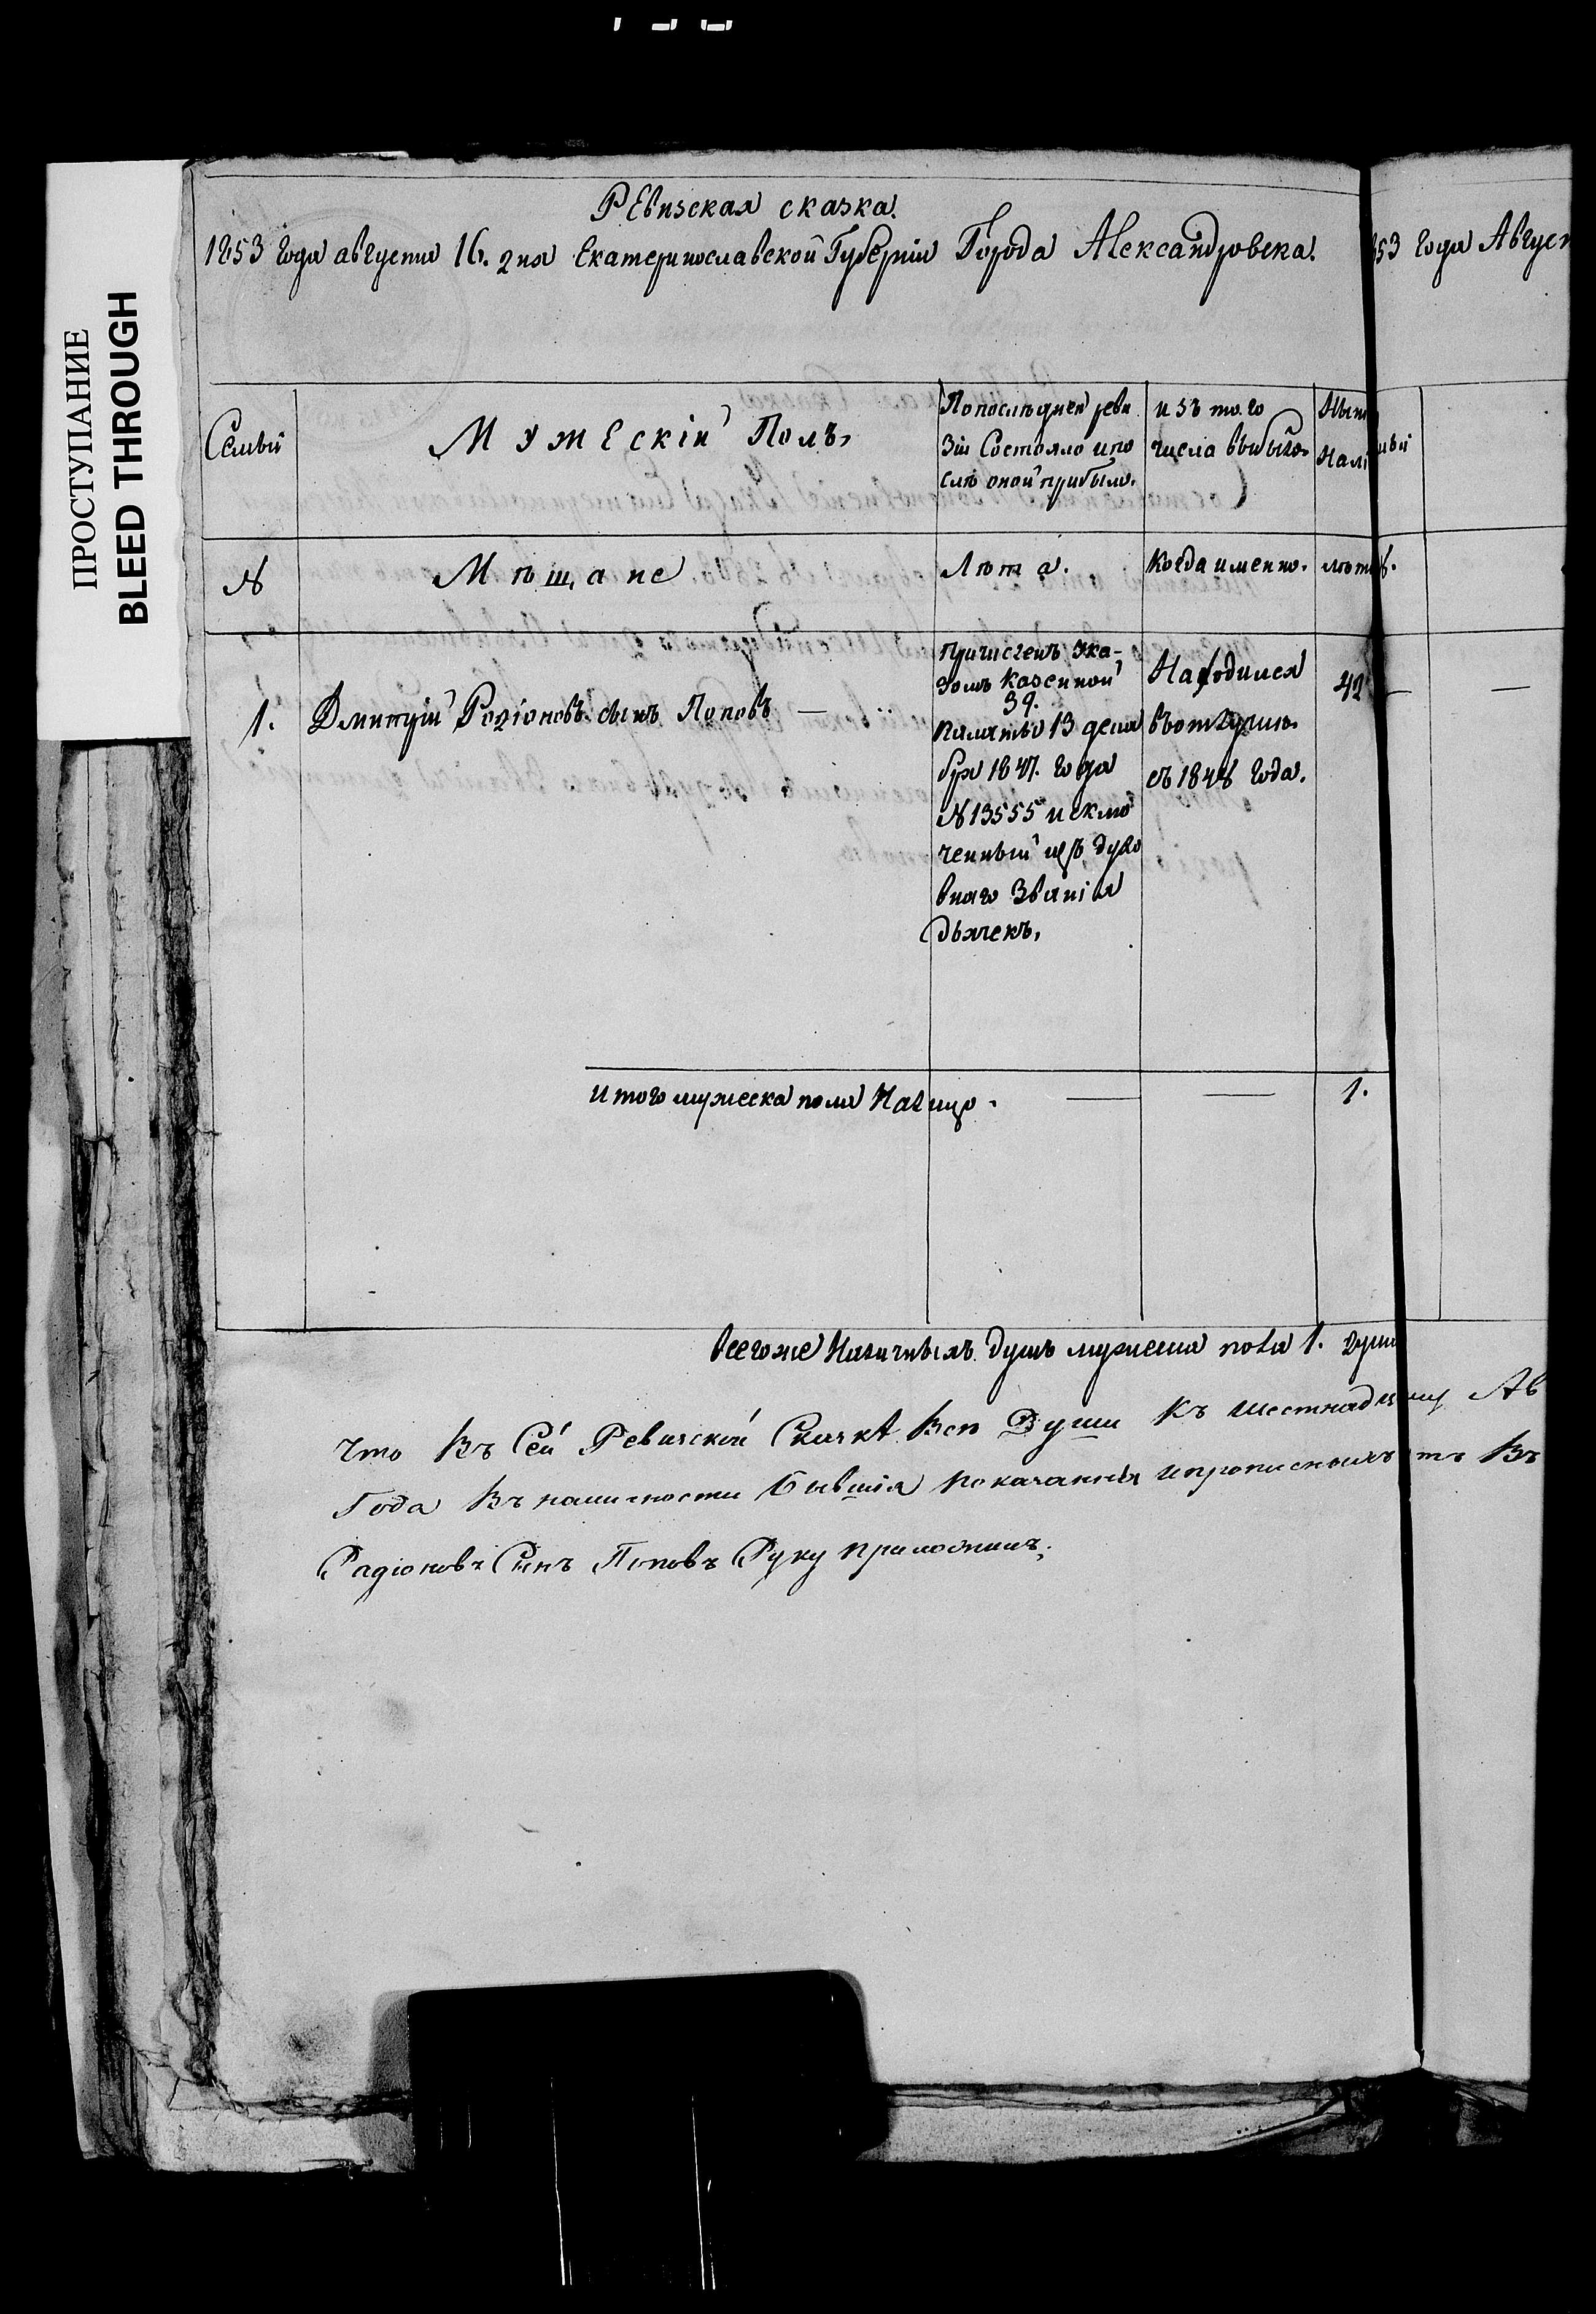 ПРОСТУПАНИЕ
BLEED THROUGH
Ревизская сказка.
1853 года августа 16. дня Екатеринославской Губерніи Города Александровска.
853 года Авгус
Семьи
Мужескій Полъ,
По последней реви
зіи Состояло и по
слѣ оной прибыло.
и зъ того
числа выбыло.
Нын
Нали
№
Мѣщане
Лѣта.
Когда именно.
лѣт
1.
Дмитрій Родіоновъ сынъ Поповъ —
Причисленъ Ука-
зомъ Казенной
39.
Палаты 13 дека
бря 1847. года
№ 13555 исклю
ченный изъ духо
внаго Званія
дьячекъ,
Находился
въ отлучке
съ 1848 года.
42
итого мужеска пола Налицо.
1.
Всего же Наличныхъ душъ мужеска пола 1. душа
Что Въ Сей Ревизской Сказкѣ Все Души Къ шестнадца Ав
Года Въ наличности бывшія показанны и прописныхъ Въ
Радіоновъ Синъ Поповъ Руку приложилъ.